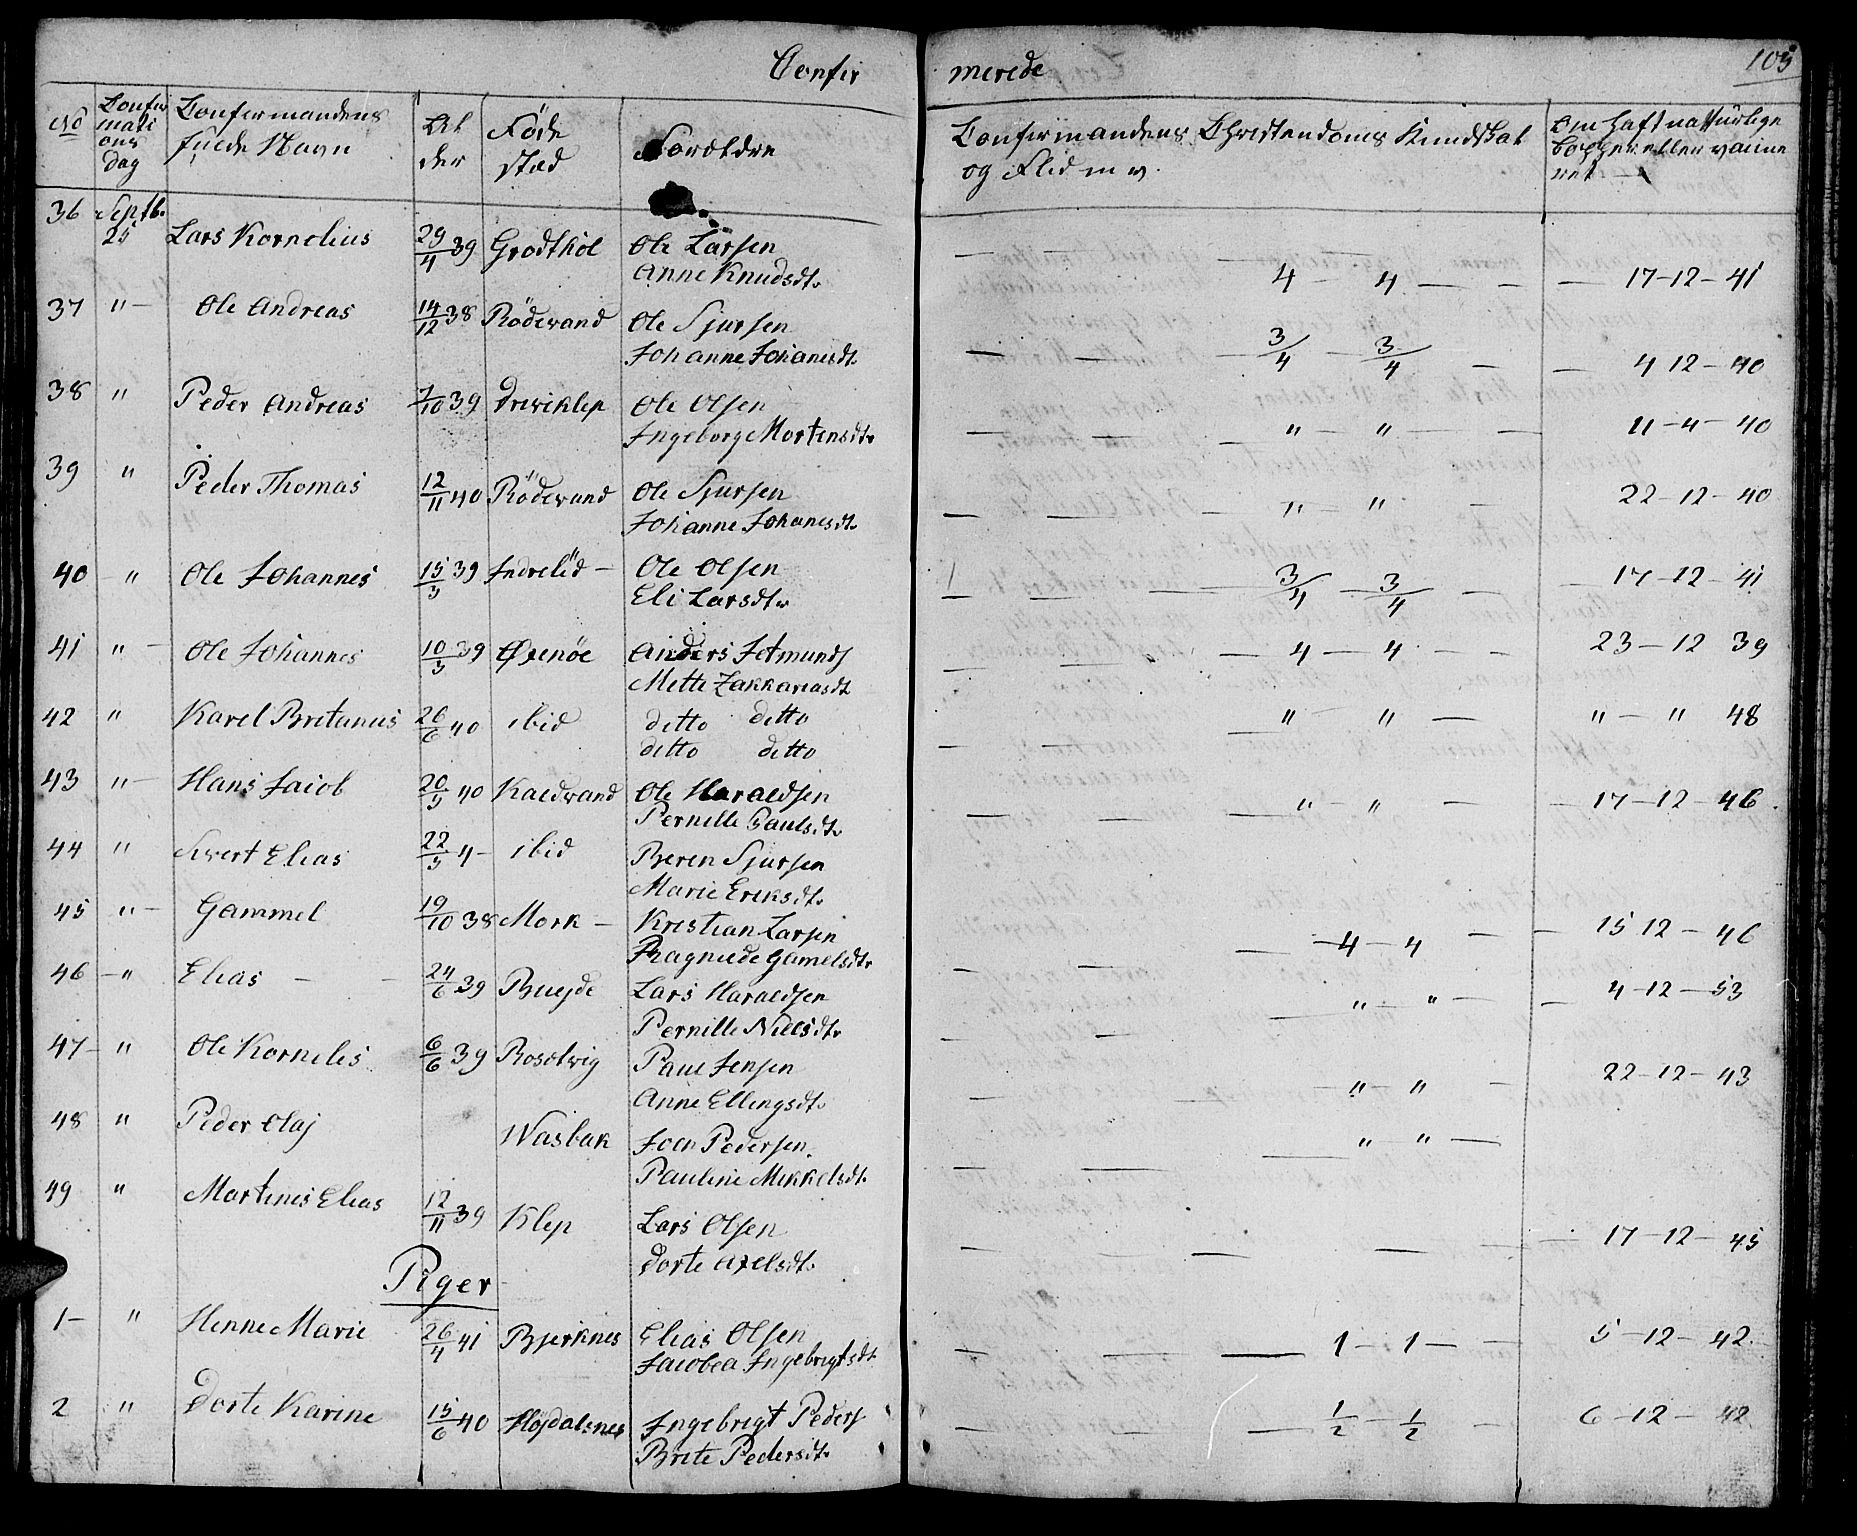 Confir merede 105
No Confirmations Dag Confirmandens fulde Navn Alder Føde stæd Foreldre Confirmandens Christendoms Kundskab og Flid m v. Om haft naturlige Copper eller vaccineret
36 Septb. 25 Lars Kornelius 29/4 39 Grodthol Ole Larsen 4 — 4 17-12-41
Anne Knudsdt.
37 " Ole Andreas 14/12 38 Rödevand Ole Sjursen 3/4 — 3/4 4 12-40
Johanne Johanesdt.
38 " Peder Andreas 7/10 39 Driviklep Ole Olsen " — " 11-4-40
Ingeborg Mortensdt.
39 " Peder Thomas 12/11 40 Rödevand Ole Sjursen " — " 22-12-40
Johanne Johanesdt.
40 " Ole Johannes 15/3 39 Indrelid Ole Olsen 3/4 — 3/4 17-12-41
Eli Larsdt.
41 " Ole Johannes 10/3 39 Øxenöe Anders Jetmunds 4 — 4 23-12 39
Mette Zakkariasdt.
42 " Karel Britanus 26/6 40 ibid ditto ditto " — " " — " 48
ditto ditto
43 " Hans Jacob 20/3 40 Kaldvand Ole Haraldsen " — " 17-12-46
Pernille Paulsdt.
44 " Sivert Elias 22/3 4- ibid Beren Sjursen
Marie Eriksdt.
45 " Gammel 19/10 38 Mork Kristian Larsen 4 — 4 15 12-46
Ragnilde Gamelsdt.
46 " Elias 24/6 39 Buejde Lars Haraldsen " — " 4-12-53
Pernille Nielsdt.
47 " Ole Kornelis 6/6 39 Rosolvig Paul Jensen " — " 22-12-43
Anne Ellingsdt.
48 " Peder Olaj Wasbak Joen Pedersen " "
Pauline Mikkelsdt.
49 " Martines Elias 12/11 39 Klep Lars Olsen 17-12-45
Dorte Axelsdt.
Piger
1 " Henne Marie 26/4 41 Bjerknes Elias Olsen 1 — 1 5-12-42
Jacobea Ingebrigtsdt.
2 " Dorte Karine 15/6 40 Höjdalsnes Ingebrigt Peders 1/2 — 1/2 6-12-42
Brite Pedersdt.